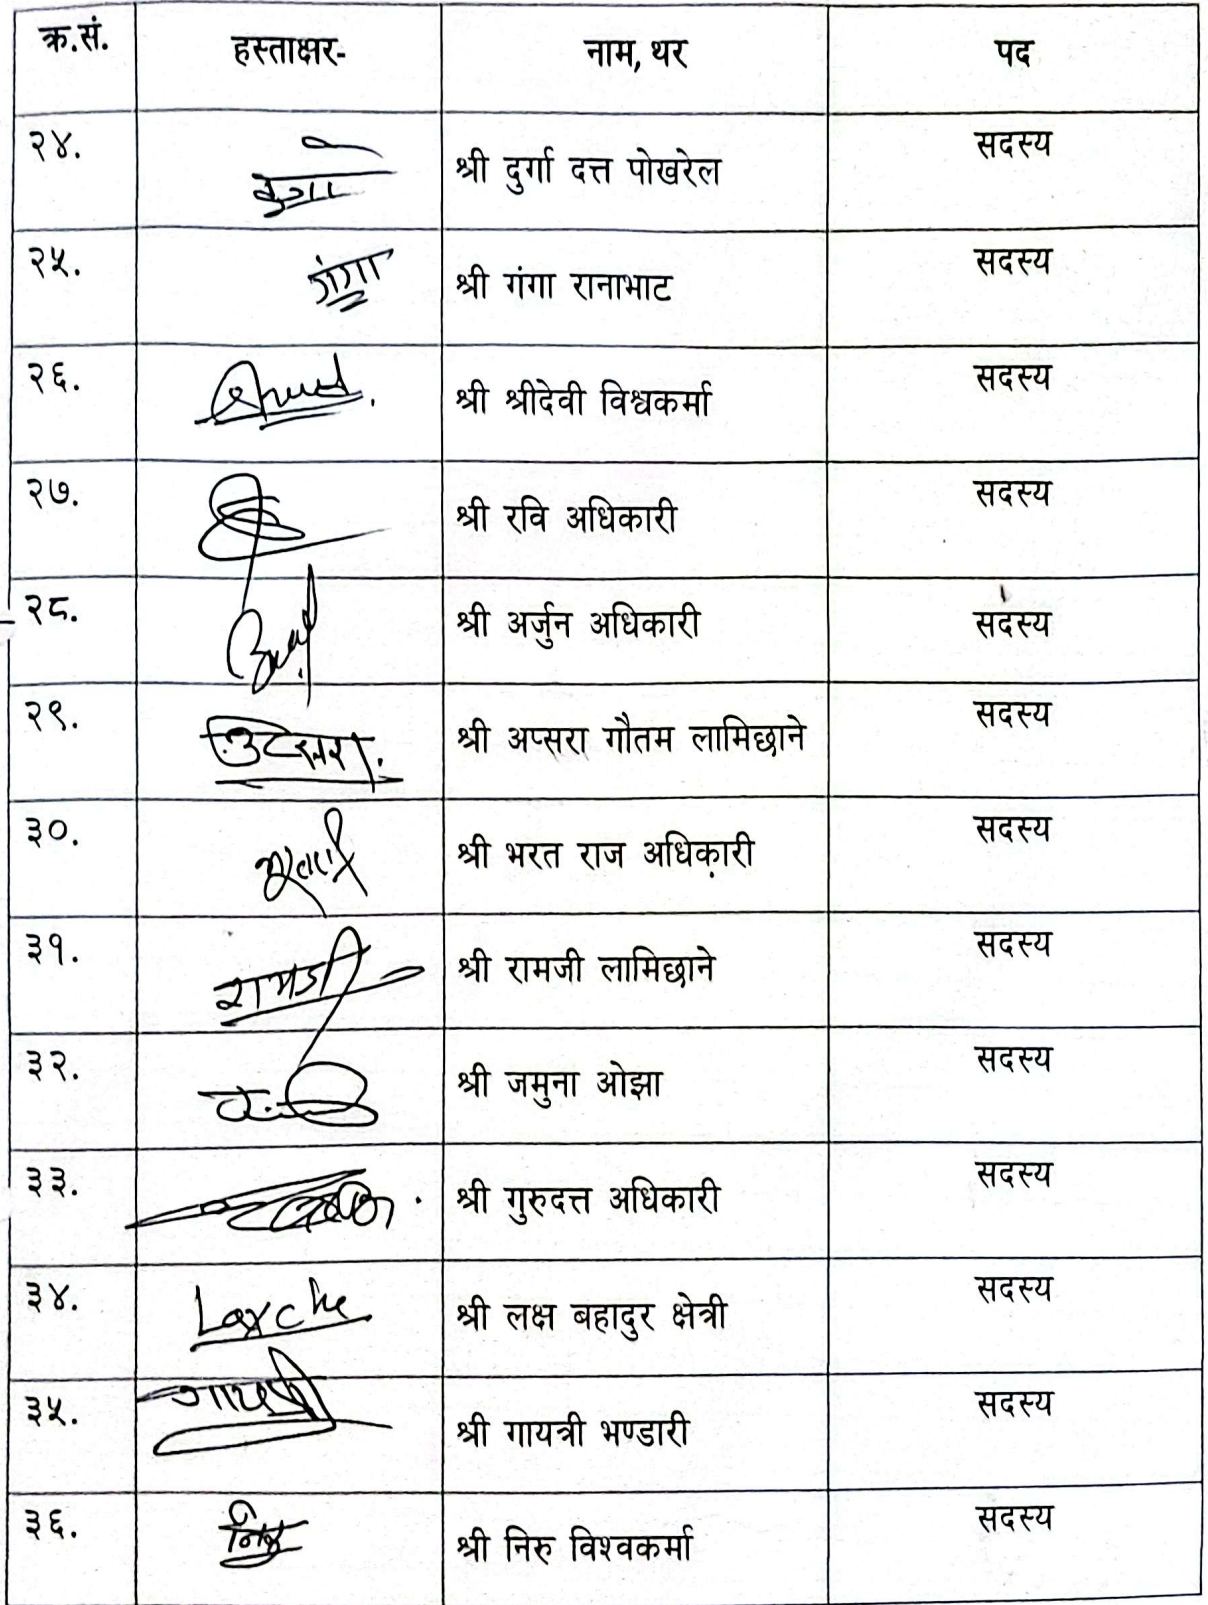 क्र.सं. हस्ताक्षर- नाम, थर पद
२४. श्री दुर्गा दत्त पोखरेल सदस्य
२५. गंगा श्री गंगा रानाभाट सदस्य
२६. श्री श्रीदेवी विश्वकर्मा सदस्य
२७. श्री रवि अधिकारी सदस्य
२८. श्री अर्जुन अधिकारी सदस्य
२९. श्री अप्सरा गौतम लामिछाने सदस्य
३०. श्री भरत राज अधिकारी सदस्य
३१. रामजी श्री रामजी लामिछाने सदस्य
३२. श्री जमुना ओझा सदस्य
३३. श्री गुरुदत्त अधिकारी सदस्य
३४. श्री लक्ष बहादुर क्षेत्री सदस्य
३५. गायत्री श्री गायत्री भण्डारी सदस्य
३६. श्री निरु विश्वकर्मा सदस्य